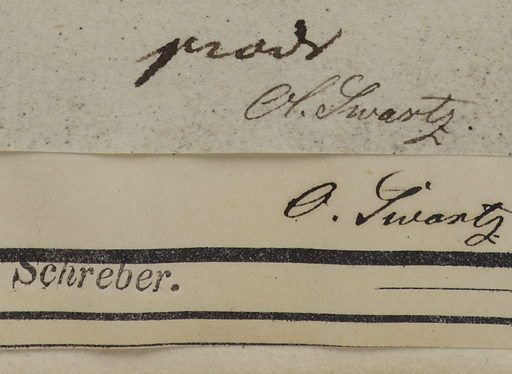 prodr
Ol. Swartz.
O. Swartz
Schreber.